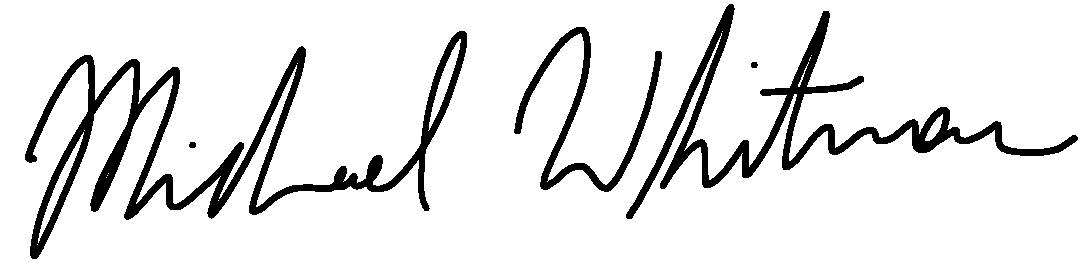 Michael Whitman